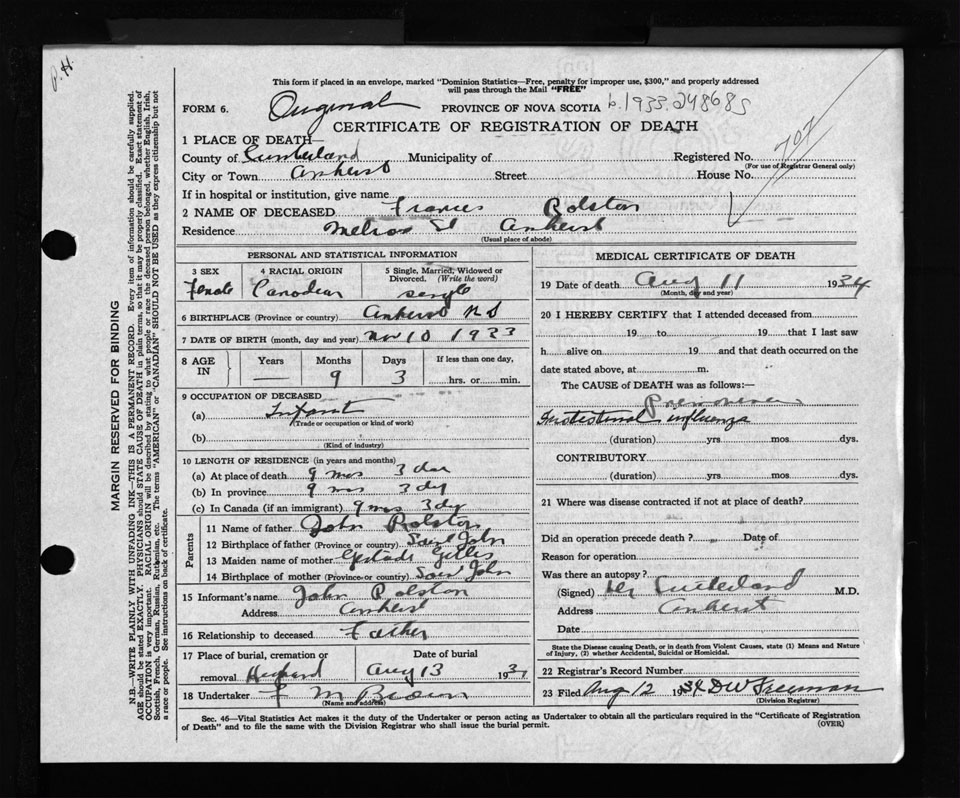 P.H.
This form if placed in an envelope, marked "Dominion Statistics—Free, penalty for improper use, $300," and properly addressed
will pass through the Mail "FREE"
FORM 6. Original PROVINCE OF NOVA SCOTIA b.1933.248685
CERTIFICATE OF REGISTRATION OF DEATH
1 PLACE OF DEATH—
County of Cumberland Municipality of Registered No. 707
(For use of Registrar General only)
City or Town Amherst Street House No.
If in hospital or institution, give name
2 NAME OF DECEASED Frances Rolston
Residence Melrose St Amherst
(Usual place of abode)
PERSONAL AND STATISTICAL INFORMATION
3 SEX 4 RACIAL ORIGIN 5 Single, Married, Widowed or Divorced. (Write the word)
Female Canadian single
6 BIRTHPLACE (Province or country) Amherst N S
7 DATE OF BIRTH (month, day and year) Nov 10 1933
8 AGE IN Years Months Days If less than one day,
— 9 3 hrs. or min.
9 OCCUPATION OF DECEASED
(a) Infant
(Trade or occupation or kind of work)
(b)
(Kind of industry)
10 LENGTH OF RESIDENCE (in years and months)
(a) At place of death 9 mos 3 day
(b) In province 9 mos 3 dy
(c) In Canada (if an immigrant) 9 mos 3 dy
Parents
11 Name of father John Rolston
12 Birthplace of father (Province or country) Saint John
13 Maiden name of mother
14 Birthplace of mother (Province or country) Saint John
15 Informant's name John Rolston
Address Amherst
16 Relationship to deceased Father
17 Place of burial, cremation or removal Date of burial
Aug 13 193
18 Undertaker F M Brown
(Name and address)
MEDICAL CERTIFICATE OF DEATH
19 Date of death Aug 11 1934
(Month, day and year)
20 I HEREBY CERTIFY that I attended deceased from
19 to 19 that I last saw
h alive on 19 and that death occurred on the
date stated above, at m.
The CAUSE of DEATH was as follows:—
Pneumonia
influenza
(duration) yrs. mos. dys.
CONTRIBUTORY
(duration) yrs. mos. dys.
21 Where was disease contracted if not at place of death?
Did an operation precede death? Date of
Reason for operation
Was there an autopsy?
(Signed) Sutherland M.D.
Address Amherst
Date
State the Disease causing Death, or in death from Violent Causes, state (1) Means and Nature
of Injury, (2) whether Accidental, Suicidal or Homicidal.
22 Registrar's Record Number
23 Filed Aug 12 1934 D W Freeman
(Division Registrar)
Sec. 46—Vital Statistics Act makes it the duty of the Undertaker or person acting as Undertaker to obtain all the particulars required in the "Certificate of Registration
of Death" and to file the same with the Division Registrar who shall issue the burial permit. (OVER)
MARGIN RESERVED FOR BINDING
N.B.—WRITE PLAINLY WITH UNFADING INK—THIS IS A PERMANENT RECORD. Every item of information should be carefully supplied.
AGE should be stated EXACTLY. PHYSICIANS should STATE CAUSE OF DEATH in plain terms, so that it may be properly classified. Exact statement of
OCCUPATION is very important. RACIAL ORIGIN will be described by stating to what people or race the deceased person belonged, whether English, Irish,
Scottish, French, German, Russian, Ruthenian, etc. The terms "AMERICAN" or "CANADIAN" SHOULD NOT BE USED as they express citizenship but not
a race or people. See instructions on back of certificate.